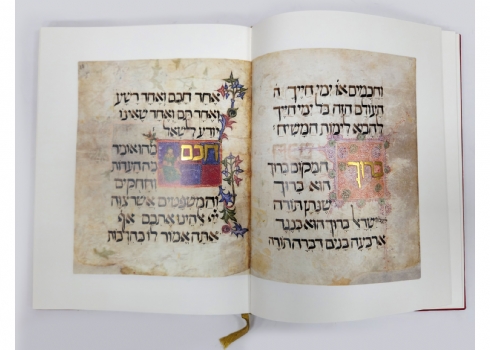 וחכמים או ימי חייך ה
העולם הזה כל ימי חייך
להביא לימות המשיח
ברוך המקום ברוך
הוא ברוך
שנתן תורה
ישראל ברוך הוא כנגד
ארבעה בנים דברה תורה
אחד חכם ואחד רשע
ואחד תם ואחד שאינו
יודע לישאל
חכם מהו אומר
מה העדות
והחקים
והמשפטים אשר צוה
יי אלהינו אתכם אף
אתה אמור לו כהלכות